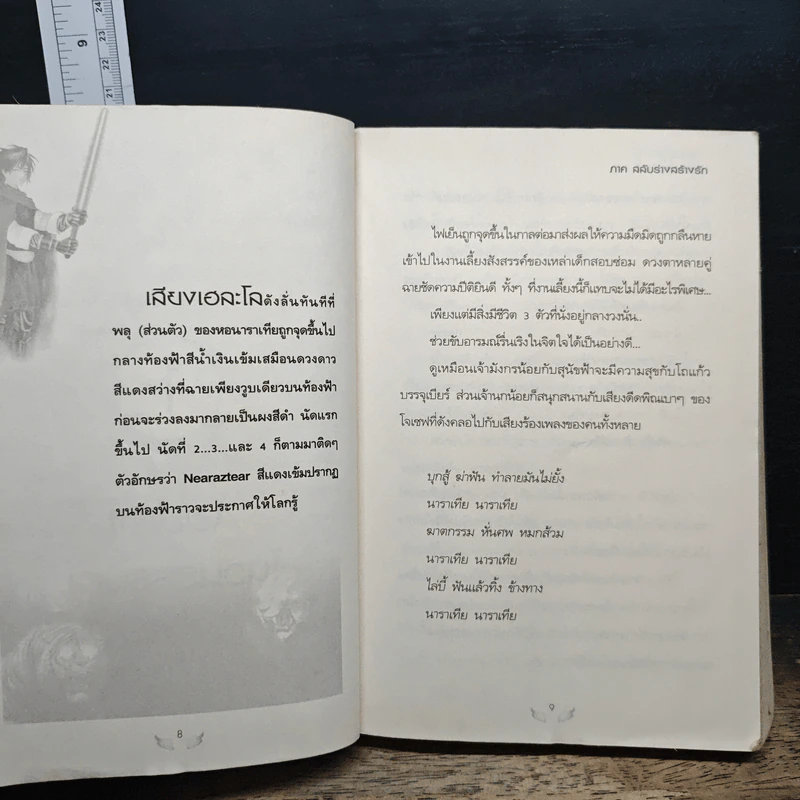 9
24
23
22
21
เสียงเฮละโลดังลั่นทันทีที่
พลุ (ส่วนตัว) ของหอนาราเทียถูกจุดขึ้นไป
กลางท้องฟ้าสีน้ำเงินเข้มเสมือนดวงดาว
สีแดงสว่างที่ฉายเพียงวูบเดียวบนท้องฟ้า
ก่อนจะร่วงลงมากลายเป็นผงสีดำ นัดแรก
ขึ้นไป นัดที่ 2...3...และ 4 ก็ตามมาติดๆ
ตัวอักษรว่า Nearaztear สีแดงเข้มปรากฏ
บนท้องฟ้าราวจะประกาศให้โลกรู้
8
ภาค สลับร่างสร้างรัก
ไฟเย็นถูกจุดขึ้นในกาลต่อมาส่งผลให้ความมืดมิดถูกกลืนหาย
เข้าไปในงานเลี้ยงสังสรรค์ของเหล่าเด็กสอบซ่อม ดวงตาหลายคู่
ฉายชัดความปีติยินดี ทั้งๆ ที่งานเลี้ยงนี้ก็แทบจะไม่ได้มีอะไรพิเศษ...
เพียงแต่มีสิ่งมีชีวิต 3 ตัวที่นั่งอยู่กลางวงนั่น..
ช่วยขับอารมณ์รื่นเริงในจิตใจได้เป็นอย่างดี...
ดูเหมือนเจ้ามังกรน้อยกับสุนัขฟ้าจะมีความสุขกับโถแก้ว
บรรจุเบียร์ ส่วนเจ้านกน้อยก็สนุกสนานกับเสียงดีดพิณเบาๆ ของ
โจเซฟที่ดังคลอไปกับเสียงร้องเพลงของคนทั้งหลาย
บุกสู้ ฆ่าฟัน ทำลายมันไม่ยั้ง
นาราเทีย นาราเทีย
ฆาตกรรม หั่นศพ หมกส้วม
นาราเทีย นาราเทีย
ไล่บี้ ฟันแล้วทิ้ง ข้างทาง
นาราเทีย นาราเทีย
9